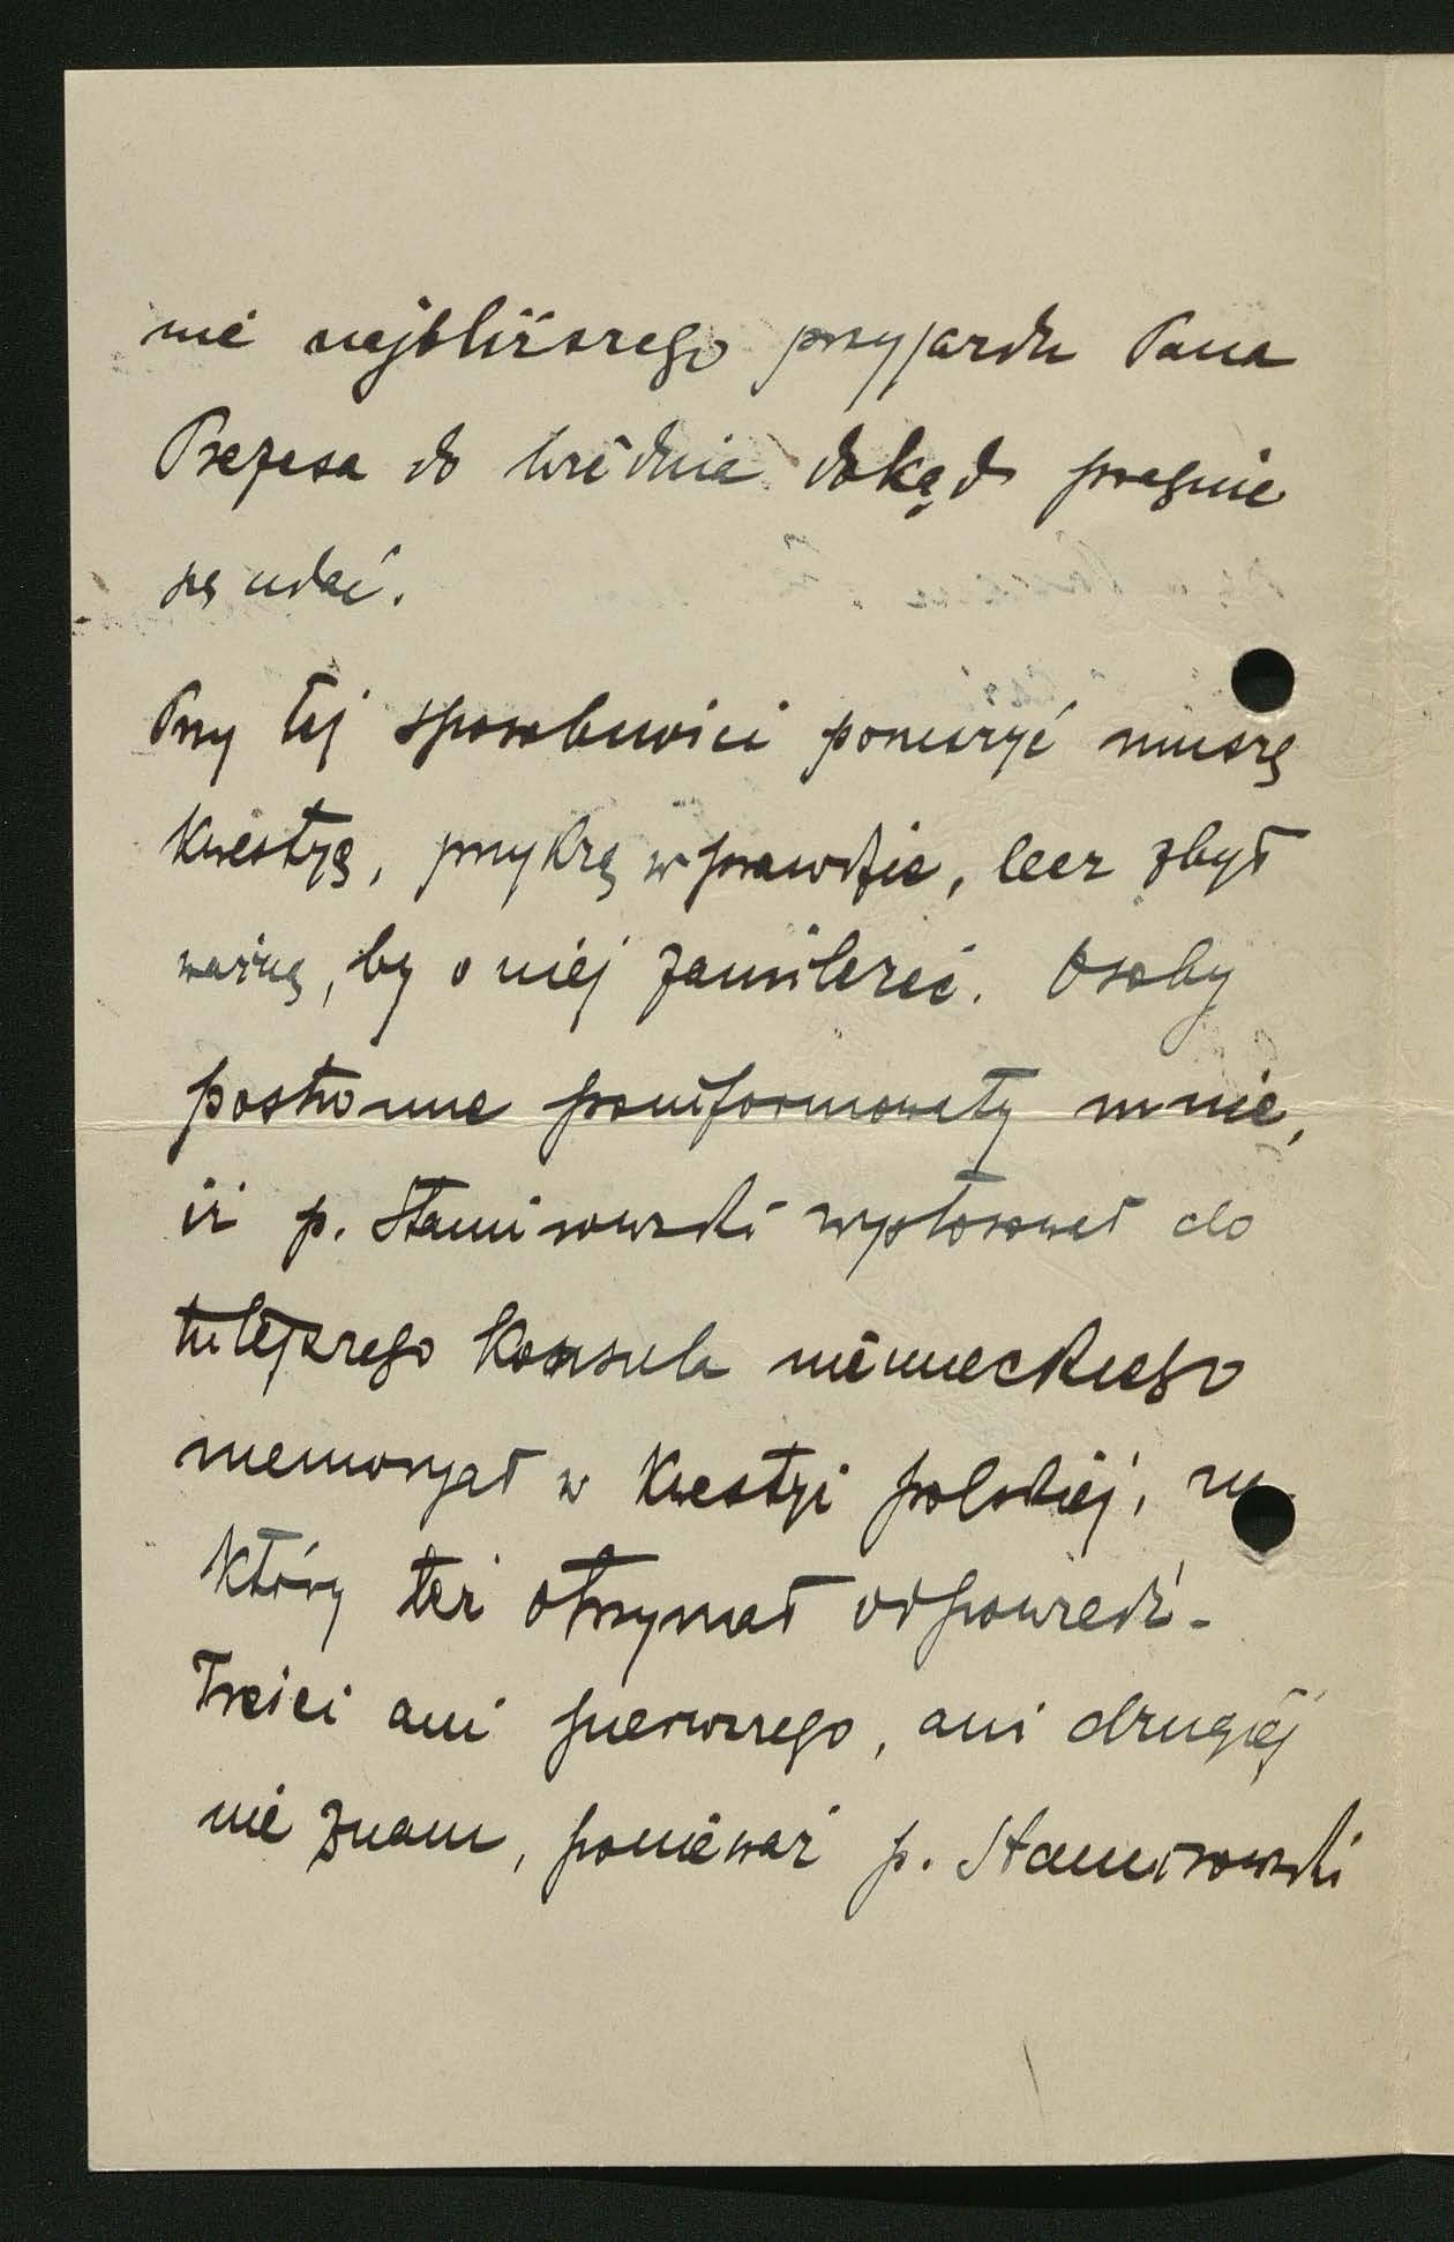 nie najbliższego przyjazdu Pana
Prezesa do Wiednia dokąd pragnie
się udać.
Przy tej sposobności poruszyć muszę
kwestyę, przykrą wprawdzie, lecz zbyt
ważną, by o niej zamilczeć. Osoby
postronne poinformowały mnie,
iż p. Stanisowski wystosował do
tutejszego konsula niemieckiego
memoryał w kwestyi polskiej, na
który też otrzymał odpowiedź.
Treści ani pierwszego, ani drugiej
nie znam, ponieważ p. Stanisowski